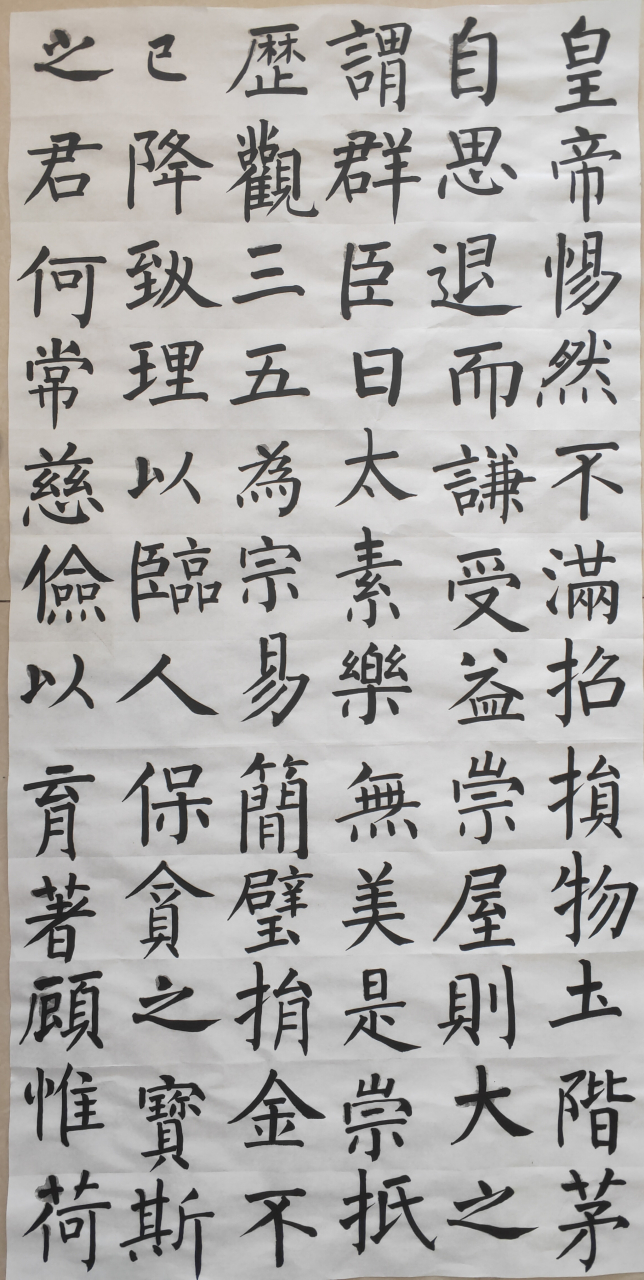 皇帝惕然不滿招損物土階茅
自思退而謙受益崇屋則大之
謂群臣曰太素樂無美是崇抵
歴觀三五為宗易簡璧捐金不
已降致理以臨人保貪之寶斯
之君何常慈儉以育著顧惟荷